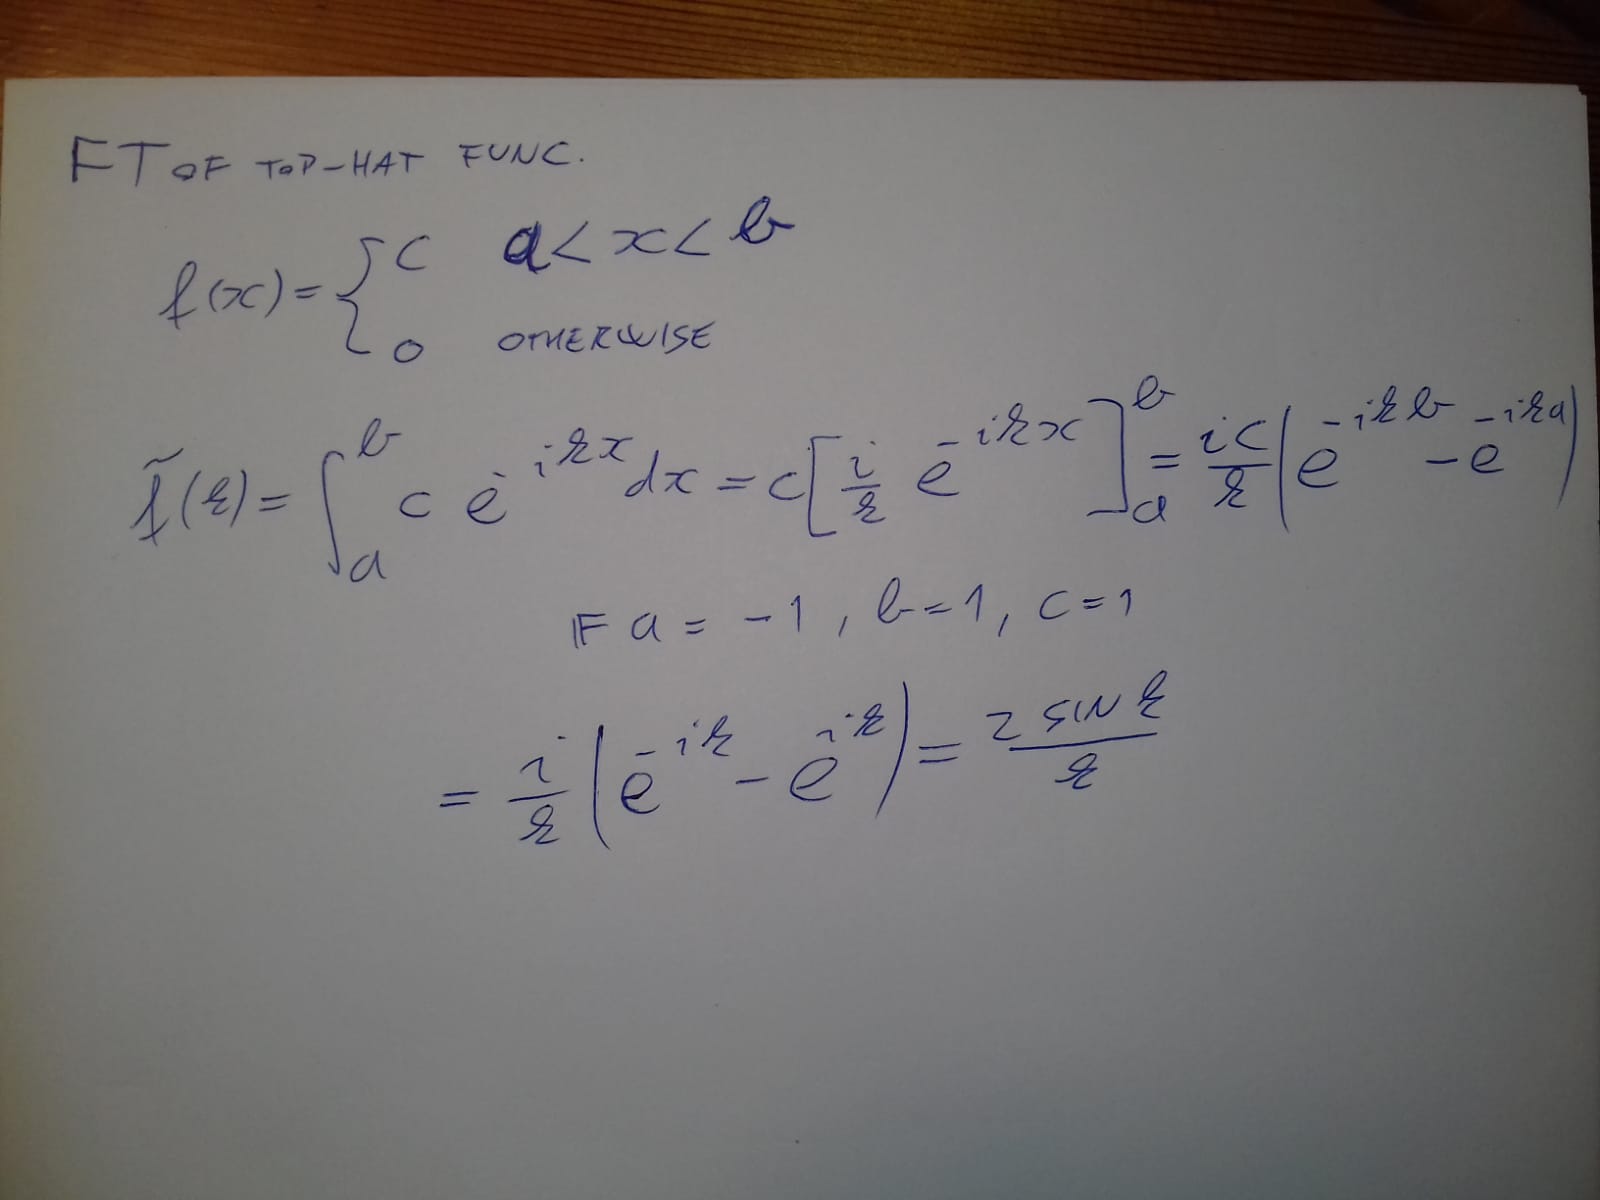 FT OF TOP-HAT FUNC.
f(x) = { C a < x < b
0 OTHERWISE
f̃(k) = ∫_a^b c e^{-ikx} dx = c [ i/k e^{-ikx} ]_a^b = ic/k ( e^{-ikb} - e^{-ika} )
IF a = -1, b = 1, c = 1
= i/k ( e^{-ik} - e^{ik} ) = 2 SIN k / k